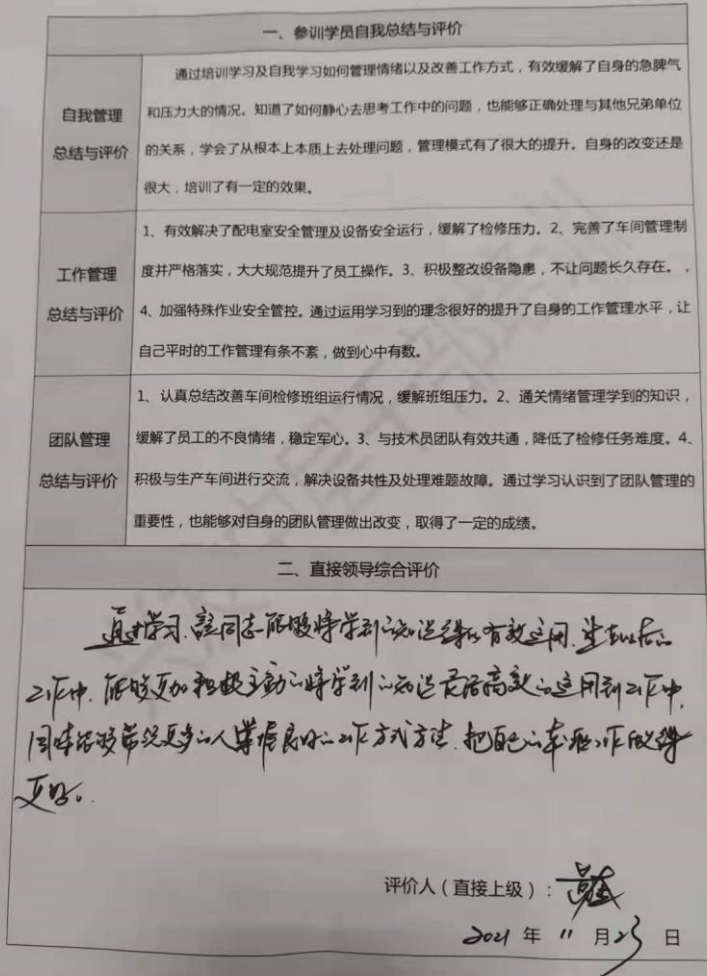 一、参训学员自我总结与评价
通过培训学习及自我学习如何管理情绪以及改善工作方式，有效缓解了自身的急脾气
自我管理
和压力大的情况。知道了如何静心去思考工作中的问题，也能够正确处理与其他兄弟单位
总结与评价
的关系，学会了从根本上本质上去处理问题，管理模式有了很大的提升。自身的改变还是
很大，培训了有一定的效果。
1、有效解决了配电室安全管理及设备安全运行，缓解了检修压力。2、完善了车间管理制
工作管理
度并严格落实，大大规范提升了员工操作。3、积极整改设备隐患，不让问题长久存在。，
总结与评价
4、加强特殊作业安全管控。通过运用学习到的理念很好的提升了自身的工作管理水平，让
自己平时的工作管理有条不紊，做到心中有数。
1、认真总结改善车间检修班组运行情况，缓解班组压力。2、通关情绪管理学到的知识，
团队管理
缓解了员工的不良情绪，稳定军心。3、与技术员团队有效共通，降低了检修任务难度。4、
总结与评价
积极与生产车间进行交流，解决设备共性及处理难题故障。通过学习认识到了团队管理的
重要性，也能够对自身的团队管理做出改变，取得了一定的成绩。
二、直接领导综合评价
通过学习，该同志能够将学到的知识得以有效运用，望在以后的
工作中，能够更加积极主动的将学到的知识灵活高效的运用到工作中，
同时能够带领更多的人掌握良好的工作方式方法，把自己的本职工作做得
更好。
评价人（直接上级）：
2021 年 11 月 23 日